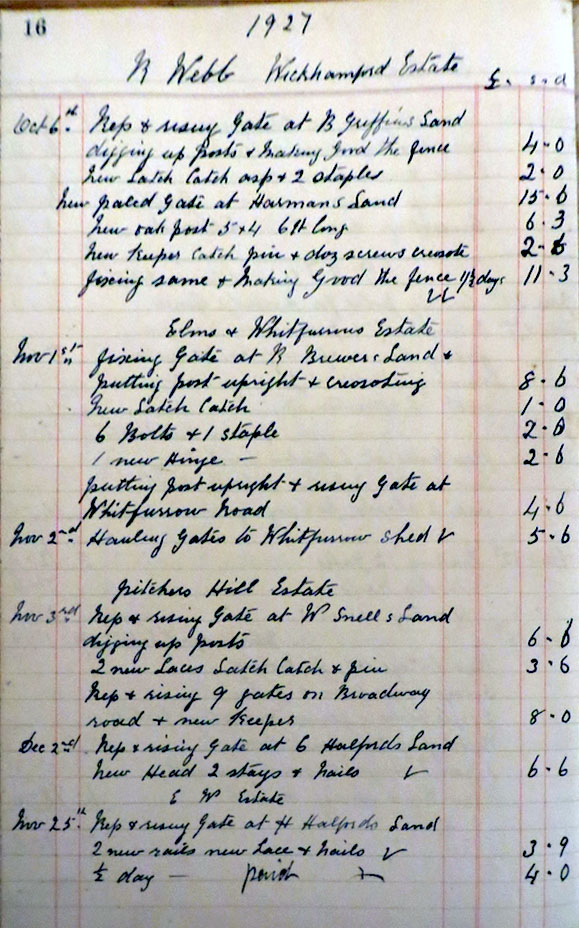 16
1927
R Webb Wickhamford Estate
£. s. d
Oct 6th Rep & rising Gate at B Griffins Land
digging up posts & Making Good the fence 4.0
New Latch Catch asp & 2 staples 2.0
New paled Gate at Harmans Land 15.6
New oak post 5 x 4 6ft long 6.3
New Keeper Catch pin & doz screws creosote 2.6
fixing same & Making Good the fence 1½ days 11.3
Elms & Whitfurrows Estate
Nov 1st fixing Gate at R Brewers Land &
putting post upright & creosoting 8.6
New Latch Catch 1.0
6 Bolts & 1 staple 2.0
1 new Hinge — 2.6
putting post upright & rising Gate at
Whitfurrow Road 4.6
Nov 2nd Hauling Gates to Whitfurrow shed 5.6
Pitchers Hill Estate
Nov 3rd Rep & rising Gate at W Snells Land
digging up posts 6.6
2 new Laces Latch Catch & pin 3.6
Rep & rising 9 gates on Broadway
road & new Keeper 8.0
Dec 2nd Rep & rising Gate at G Halfords Land
New Head 2 stays & Nails 6.6
E W Estate
Nov 25th Rep & rising Gate at H Halfords Land
2 new rails new Lace & Nails 3.9
½ day — paid 4.0